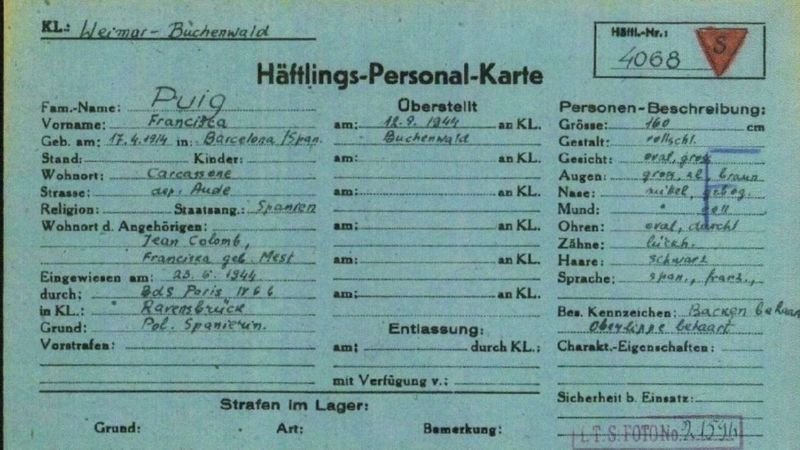 KL.: Weimar-Buchenwald
Häftl.-Nr.:
4068
S
Häftlings-Personal-Karte
Fam.-Name: Puig
Vorname: Franciska
Geb. am: 17.4.1914 in: Barcelona/Span.
Stand: Kinder:
Wohnort: Carcassone
Strasse: dep. Aude
Religion: Staatsang.: Spanien
Wohnort d. Angehörigen:
Jean Colomb,
Franciska geb. Mest
Eingewiesen am: 23.6.1944
durch: BdS Paris IV 6 b
in KL.: Ravensbrück
Grund: Pol. Spanierin.
Vorstrafen:
Überstellt
am: 12.9.1944 an KL.
Buchenwald
am: an KL.
am: an KL.
am: an KL.
am: an KL.
am: an KL.
Entlassung:
am: durch KL.:
mit Verfügung v.:
Personen-Beschreibung:
Grösse: 160 cm
Gestalt: vollschl.
Gesicht: oval, gross
Augen: gross, braun
Nase: gebog.
Mund: " voll
Ohren: oval,
Zähne: lückh.
Haare: schwarz
Sprache: span., franz.,
Bes. Kennzeichen: Backen behaart
Oberlippe behaart
Charakt.-Eigenschaften:
Sicherheit b. Einsatz:
Strafen im Lager:
Grund: Art: Bemerkung:
I.T.S. FOTO No.